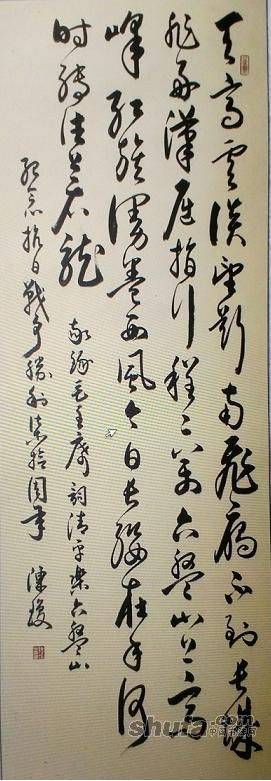 天高云淡望断南飛雁不到長城
非好漢屈指行程二萬六盤山上高
峰红旗漫卷西風今日長缨在手何
时缚住苍龍
敬錄毛主席詞清平樂六盤山
纪念抗日戰争勝利柒拾周年
陳
shufa.com